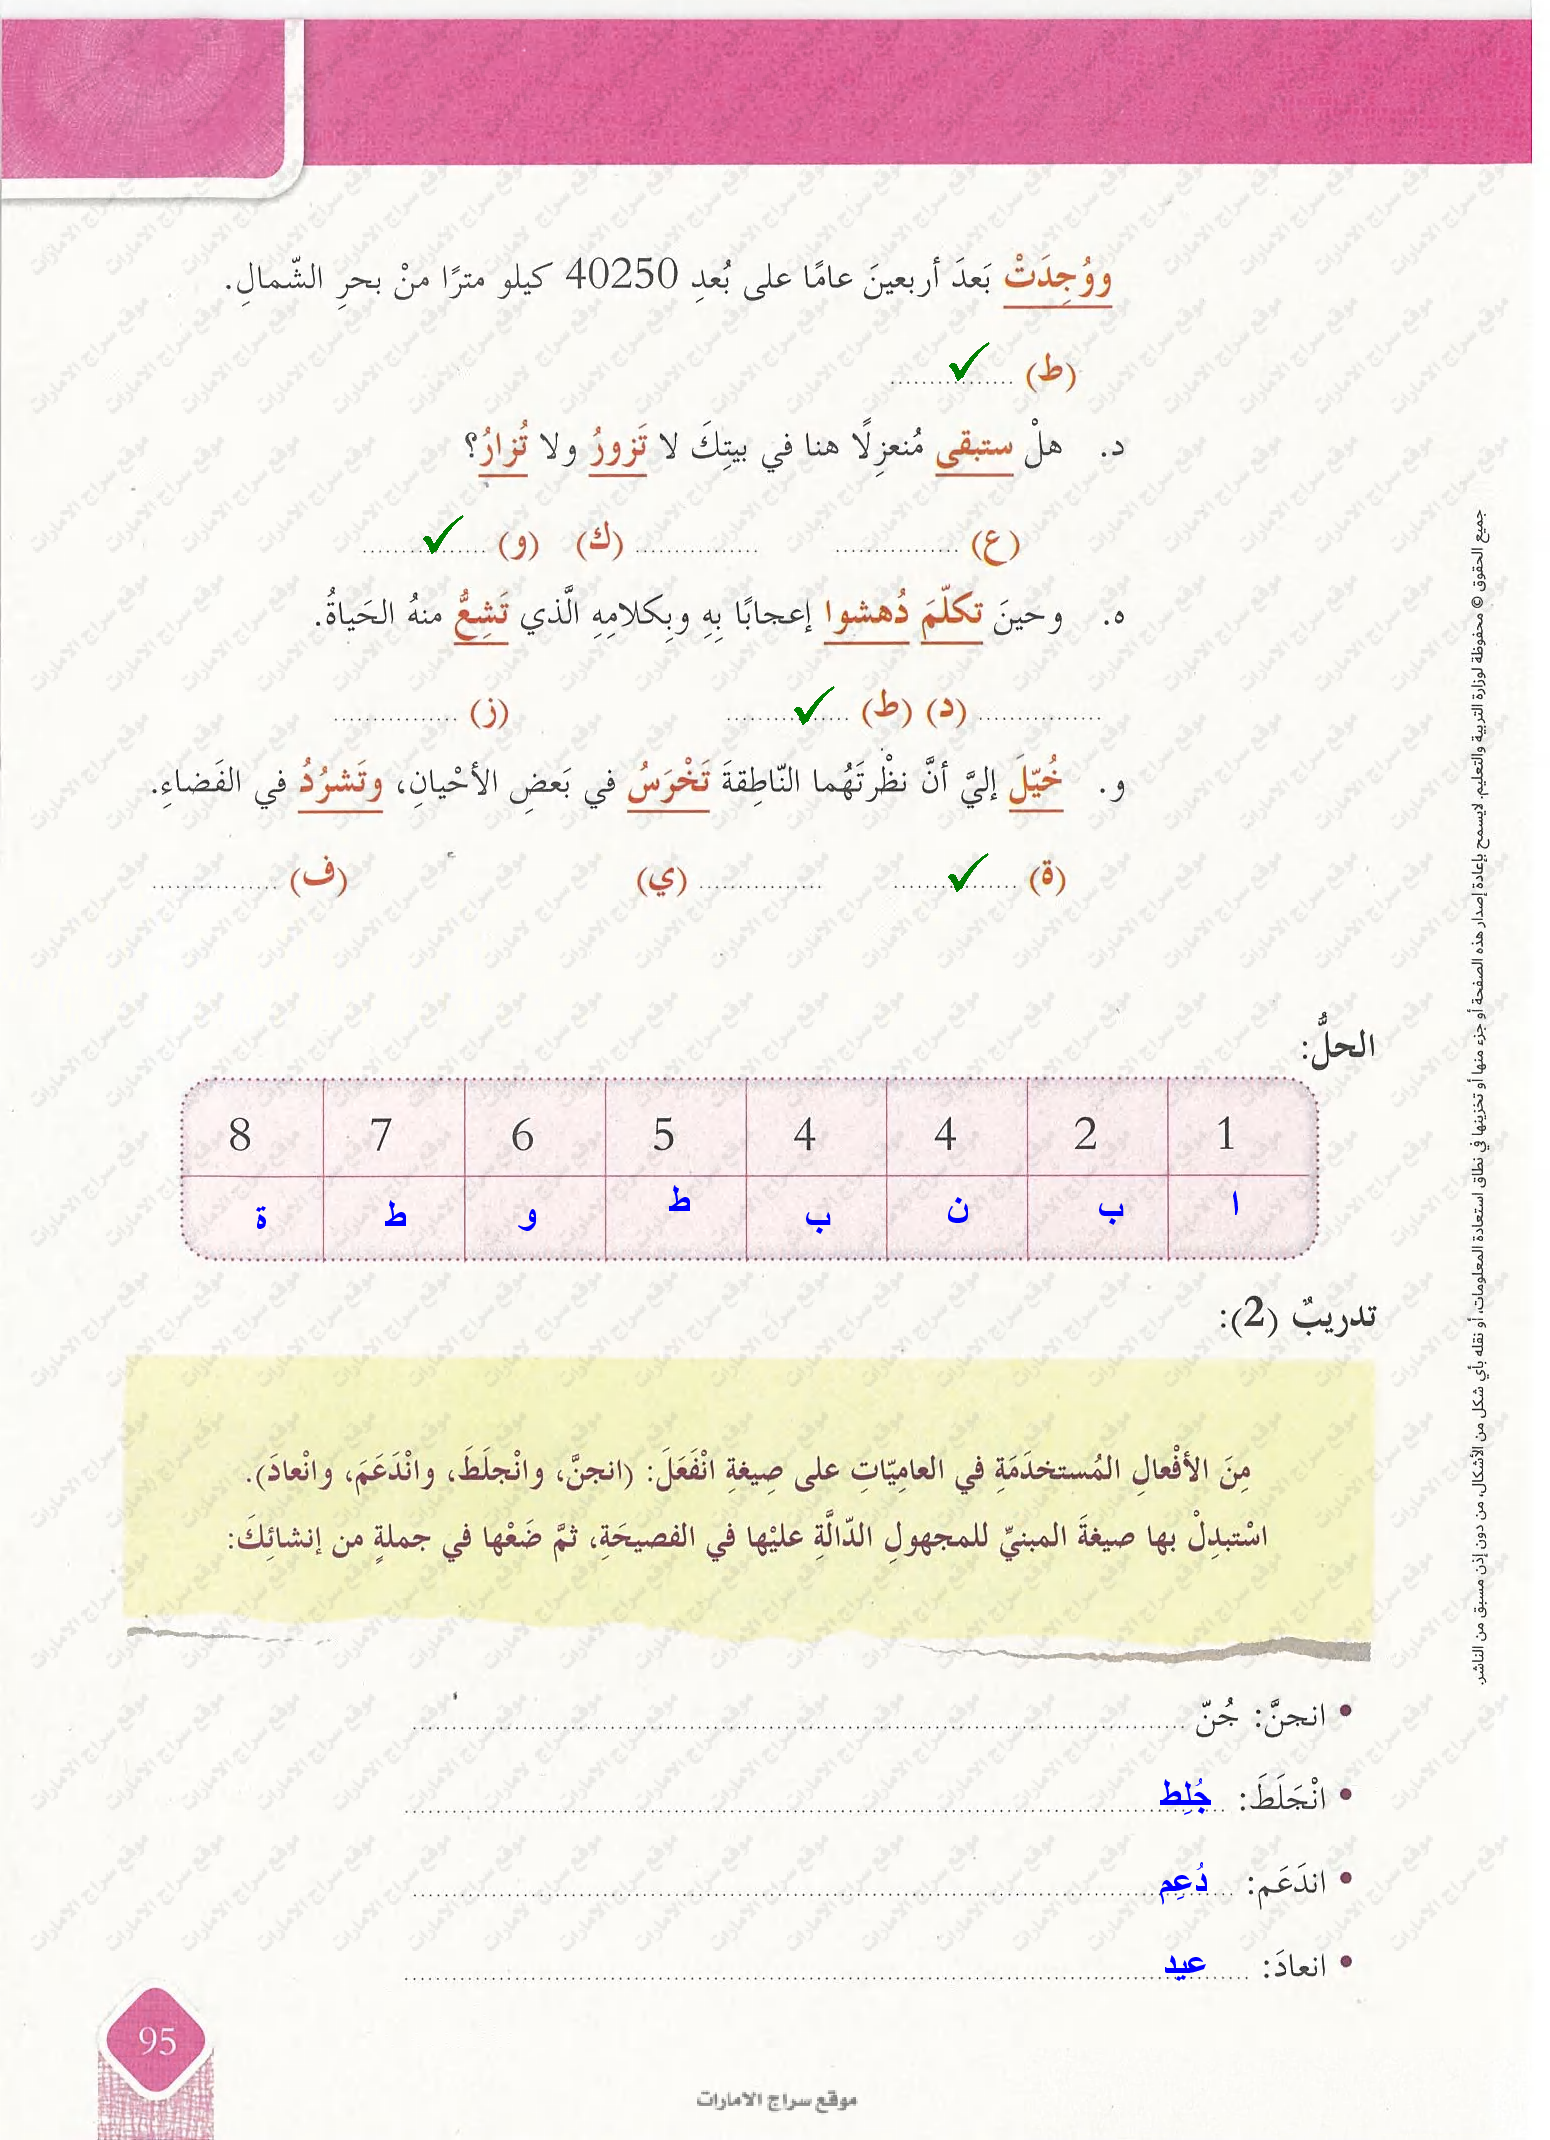 ووُجِدَتْ بَعدَ أربعينَ عامًا على بُعدِ 40250 كيلو مترًا منْ بحرِ الشّمالِ.
(ط) ................
د. هلْ ستبقى مُنعزِلًا هنا في بيتِكَ لا تَزورُ ولا تُزارُ؟
(ع) ................ ................ (ك) (و) ................
ه. وحينَ تكلّمَ دُهشوا إعجابًا بِهِ وبِكلامِهِ الَّذي تَشِعُّ منهُ الحَياةُ.
................ (د) (ط) ................ (ز) ................
و. خُيّلَ إليَّ أنَّ نظْرتَهُما النّاطِقةَ تَخْرَسُ في بَعضِ الأحْيانِ، وتَشرُدُ في الفَضاءِ.
(ة) ................ ................ (ي) (ف) ................
الحلُّ:
1 2 4 4 5 6 7 8
ا ب ن ب ط و ط ة
تدريبٌ (2):
مِنَ الأفْعالِ المُستخدَمَةِ في العامِيّاتِ على صِيغةِ انْفَعَلَ: (انجنَّ، وانْجلَطَ، وانْدَعَمَ، وانْعادَ).
اسْتبدِلْ بها صيغةَ المبنيِّ للمجهولِ الدّالَّةِ عليْها في الفصيحَةِ، ثمَّ ضَعْها في جملةٍ من إنشائِكَ:
• انجنَّ: جُنّ ................
• انْجَلَطَ: جُلِط ................
• اندَعَم: دُعِم ................
• انعادَ: عيد ................
95
موقع سراج الامارات
جميع الحقوق © محفوظة لوزارة التربية والتعليم. لايسمح بإعادة إصدار هذه الصفحة أو جزء منها أو تخزينها في نطاق استعادة المعلومات، أو نقله بأي شكل من الأشكال، من دون إذن مسبق من الناشر.